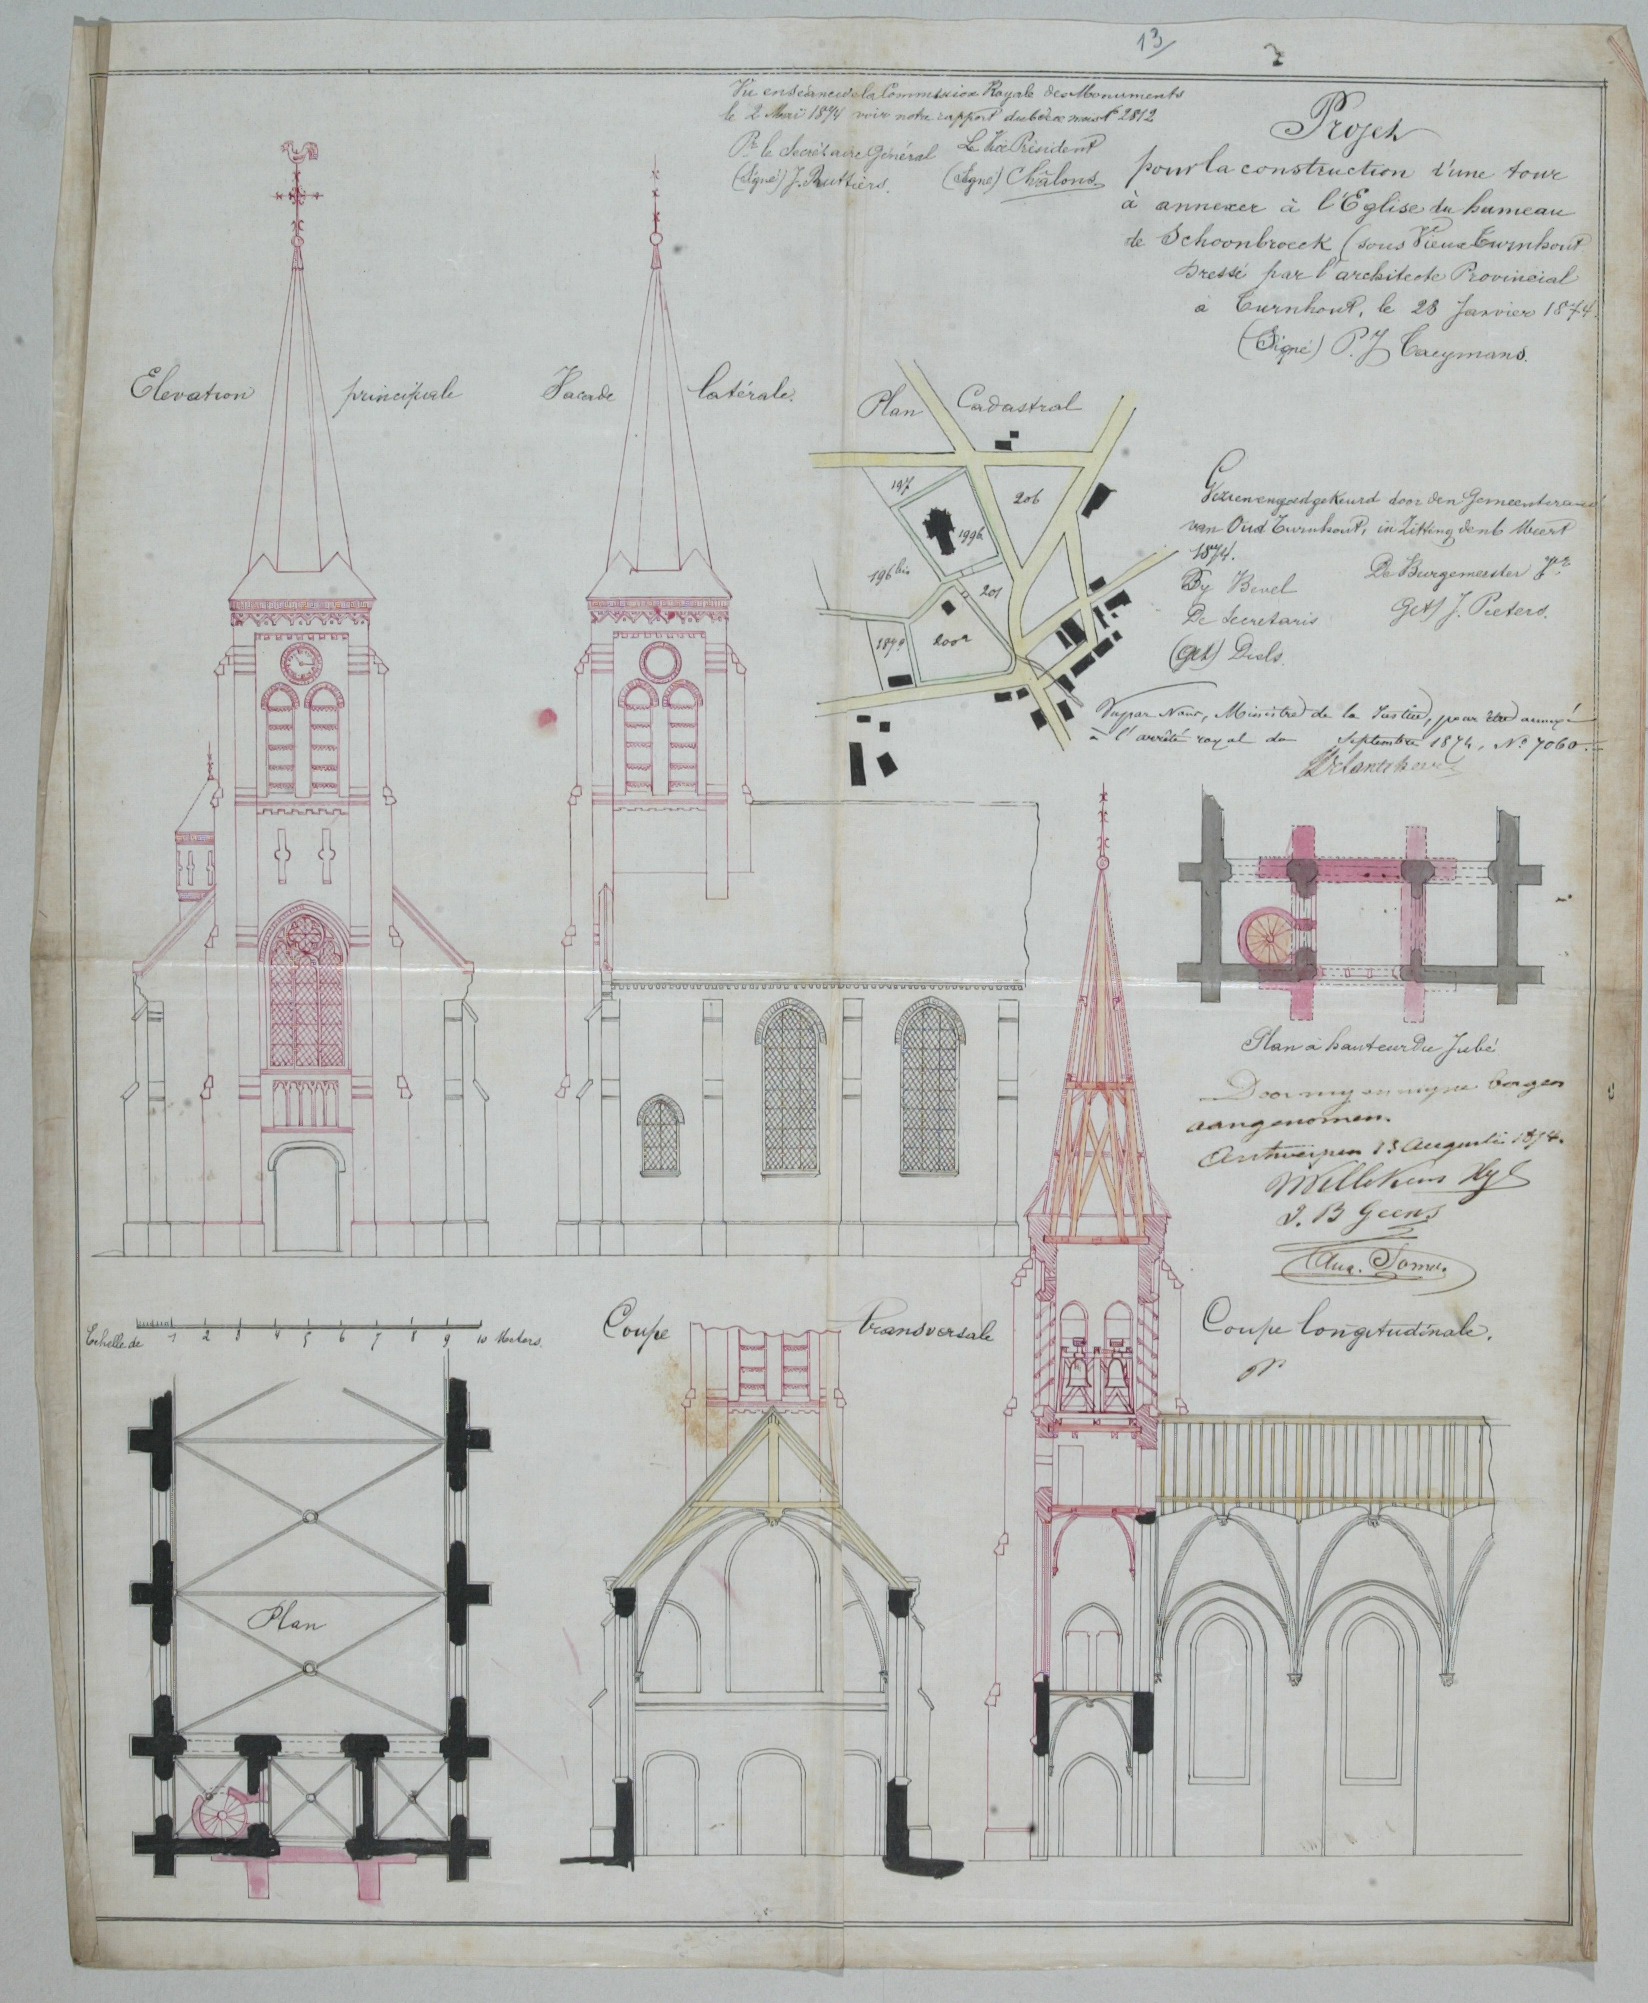 13
Vu en séance de la Commission Royale des Monuments
le 2 Mai 1874 voir notre rapport du même mois N° 2812
Pr. le Secrétaire Général
(Signé) J. Ruttiers.
Le Vice Président
(Signé) Châlons
Projet
pour la construction d'une tour
à annexer à l'Eglise du hameau
de Schoonbroeck (sous Vieux Turnhout
dressé par l'architecte Provincial
à Turnhout, le 28 Janvier 1874.
(Signé) P. J. Taeymans.
Elevation principale
Facade latérale.
Plan Cadastral
197
206
199b
196bis
201
187g
200a
Gezien en goedgekeurd door den Gemeenteraad
van Oud Turnhout, in Zitting den 6 Meert
1874.
By Bevel
De Secretaris
(get) Diels.
De Burgemeester
Get) J. Pieters.
Vu par Nous, Ministre de la Justice, pour être annexé
à l'arrêté royal du Septembre 1874, N° 7060.
Plan à hauteur du Jubé
Door my en myne borgen
aangenomen.
Antwerpen 13 Augusti 1874.
Willekens
J. B Geens
Echelle de 1 2 3 4 5 6 7 8 9 10 Meters.
Coupe transversale
Coupe longitudinale.
Plan